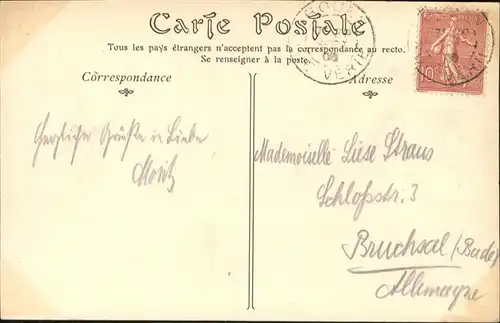 Carte Postale
Tous les pays étrangers n'acceptent pas la correspondance au recto.
Se renseigner à la poste.
Côrrespondance
Adresse
Herzliche Grüße in Liebe
Moritz
Mademoiselle Liese Straus
Schloßstr. 3
Bruchsal (Bade)
Allemagne
10